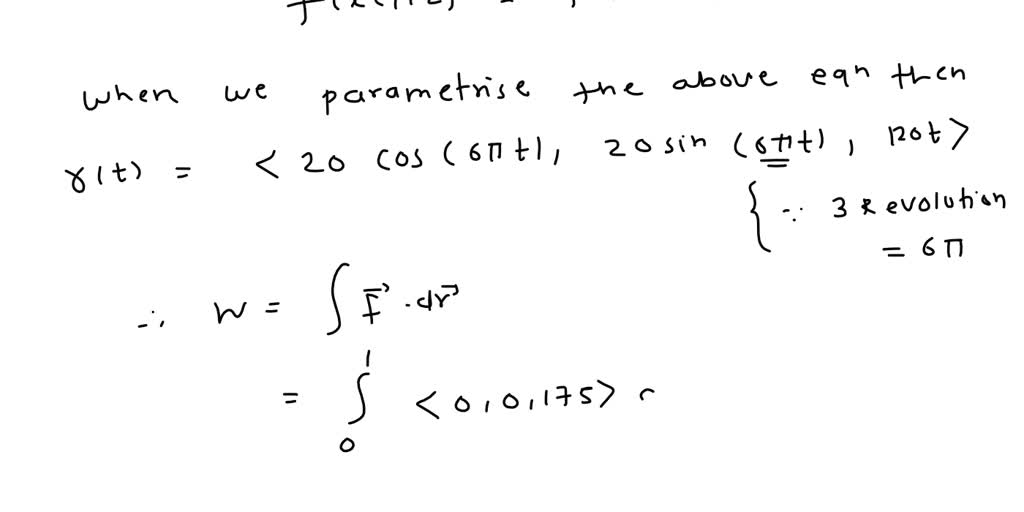 when we parametrise the above eqn then
r(t) = < 20 cos(6πt), 20 sin (6πt), 120t >
{ ∵ 3 Revolution
= 6π
∴ W = ∫ F⃗ · dr⃗
= ∫₀¹ < 0, 0, 175 >